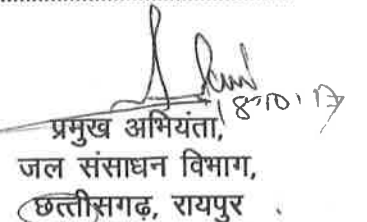 18.10.17
प्रमुख अभियंता,
जल संसाधन विभाग,
छत्तीसगढ़, रायपुर